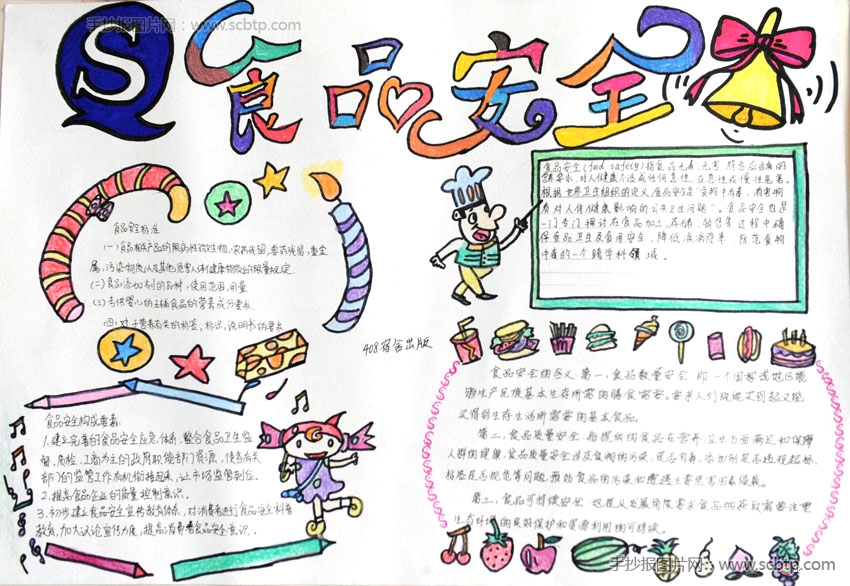 手抄报图片网：www.scbtp.com
S 食品安全
食品安全标准
(一)食品相关产品的致病性微生物，农药残留，兽药残留，重金
属，污染物质以及其他危害人体健康物质的限量规定.
(二)食品添加剂的品种，使用范围，用量
(三)专供婴儿的主辅食品的营养成分要求.
(四)对于营养有关的标签，标识，说明书的要求
食品安全(food safety)指食品无毒、无害，符合应当有的
营养要求，对人体健康不造成任何急性、亚急性在慢性危害。
根据世界卫生组织的定义，食品安全是“食物中有毒、有害物
质对人体健康影响的公共卫生问题”。食品安全也是
一门专门探讨在食品加工、存储、销售等过程中确
保食品卫生及食用安全，降低疾病隐患，防范食物
中毒的一个跨学科领域.
408宿舍出版
食品安全构成要素:
1.建立完善的食品安全应急体系，整合食品卫生监
督、质检、工商为主的政府职能部门资源，使各有关
部门的监管工作有机衔接起来，让市场监管到位.
2.提高食品企业的质量控制意识.
3.初步建立食品安全宣传教育体系，对消费者进行食品安全科普
教育，加大舆论宣传力度，提高消费者食品安全意识.
食品安全的含义：第一，食品数量安全，即一个国家或地区能
够生产民族基本生存所需的膳食需要。要求人们既能买到起又能
买得到生存生活所需要的基本食品。
第二，食品质量安全，指提供的食品在营养，卫生方面满足和保障
人群的健康，食品质量安全涉及食物的污染、是否有毒，添加剂是否违规超标、
标签是否规范等问题，
第三，食品可持续安全，这是从发展角度要求食品的获取需要注重
生态环境的良好保护和资源利用的可持续。
手抄报图片网：www.scbtp.com